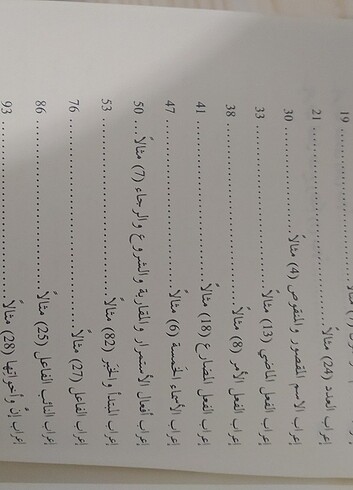 19
إعراب العدد (24) مثالاً ........ 21
إعراب الاسم المقصور والمنقوص (4) مثالاً ........ 30
إعراب الفعل الماضي (13) مثالاً ........ 33
إعراب الفعل الأمر (8) مثالاً ........ 38
إعراب الفعل المضارع (18) مثالاً ........ 41
إعراب الأسماء الخمسة (6) مثالاً ........ 47
إعراب أفعال الاستمرار والمقاربة والشروع والرجاء (7) مثالاً ... 50
إعراب المبتدأ والخبر (82) مثالاً ........ 53
إعراب الفاعل (27) مثالاً ........ 76
إعراب النائب الفاعل (25) مثالاً ........ 86
إعراب إنّ وأخواتها (28) مثالاً ........ 93